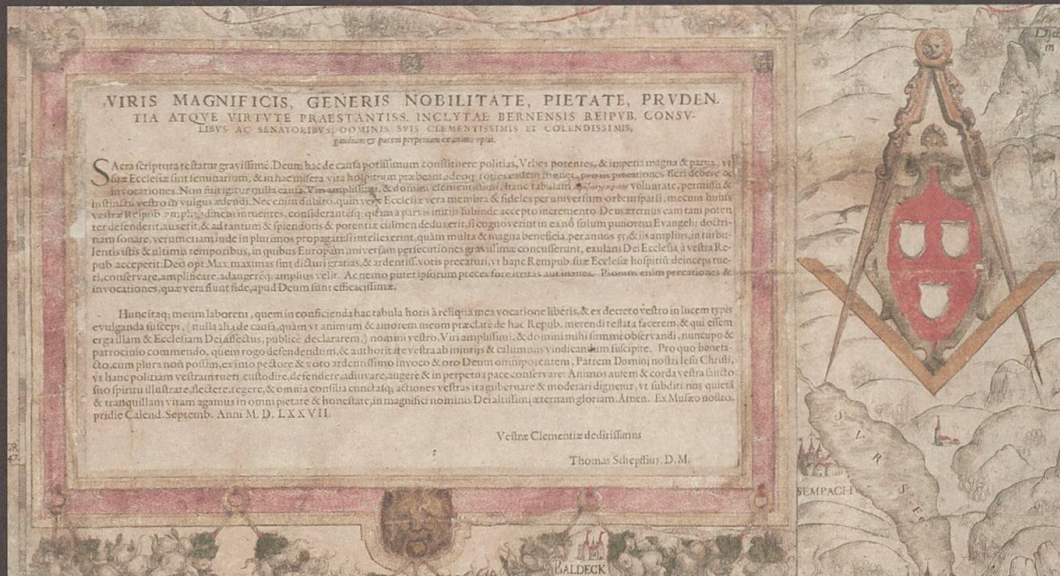 VIRIS MAGNIFICIS, GENERIS NOBILITATE, PIETATE, PRVDEN
TIA ATQVE VIRTVTE PRAESTANTISS. INCLYTAE BERNENSIS REIPVB. CONSV-
LIBVS AC SENATORIBVS, DOMINIS SVIS CLEMENTISSIMIS ET COLENDISSIMIS,
gaudium & pacem perpetuam ex animo optat.
SAcra scriptura testatur gravissimè, Deum hac de causa potissimum constituere politias, Vrbes potentes, & imperia magna & parva, vt
suæ Ecclesiæ sint seminarium, & in hac misera vita hospitium præbeant, adeoq; pro in precationes fieri debere &
invocationes. Non fuit igitur nulla causa, Viri amplissimi, & domini clementissimi, hanc tabulam voluntate, permissu &
instinctu vestro in vulgus ædendi. Nec enim dubito, quin vera Ecclesiæ vera membra & fideles per universum orbem sparsi, mecum huius
vestræ Reipub. amplitudinem intuentes, considerantesq; quàm à parvis initiis subinde accepto incremento Deus æternus eam tam poten
ter defenderit, auxerit, & ad tantum & splendoris & potentiæ culmen deduxerit, si cognoverint in ea nō solum puriorem Evangelii doctri-
nam sonare, verumetiam inde in plurimos propagari: si intellexerint, quàm multa & magna beneficia, per annos 55, & is amplius, in turbu-
lentis istis & ultimis temporibus, in quibus Europam universam persecutiones gravissimæ concusserunt, exulans Dei Ecclesia à vestra Re-
pub. acceperit: Deo opt. Max. maximas sint dicturi gratias, & ardentiss. votis precaturi, vt hanc Rempub. suæ Ecclesiæ hospitiū deinceps tue-
ri, conservare, amplificare, adaugereq; amplius velit. Ac ne mo putet ipsorum preces fore irritas aut inanes. Piorum enim precationes &
invocationes, quæ vera fiunt fide, apud Deum sunt efficacissimæ.
Hunc itaq; meum laborem, quem in conficienda hac tabula horis à reliqua mea vocatione liberis, & ex decreto vestro in lucem typis
evulganda suscepi, (nulla alia de causa, quàm vt animum & amorem meum præclarè de hac Repub. merendi testata facerem, & qui essem
erga illam & Ecclesiam Dei affectus, publicè declararem,) nomini vestro, Viri amplissimi, & domini mihi summè observandi, nuncupo &
patrocinio commendo, quem rogo defendendum, & authoritate vestra ab injuriis & calumniis vindicandum suscipite. Pro quo benefi-
cio, cum plura non possim, ex imo pectore & voto ardentissimo invoco & oro Deum omnipotentem, Patrem Domini nostri Iesu Christi,
vt hanc politiam vestram tueri, custodire, defendere, adiuvare, augere & in perpetua pace conservare: Animos autem & corda vestra sancto
suo spiritu illustrare, flectere, regere, & omnia consilia cunctasq; actiones vestras ita gubernare & moderari dignetur, vt subditi nos quietā
& tranquillam vitam agamus in omni pietate & honestate, in magnifici nominis Dei altissimi æternam gloriam. Amen. Ex Musæo nostro,
pridie Calend. Septemb. Anni M. D. LXXVII.
Vestræ Clementiæ deditissimus
Thomas Schepffius, D. M.
SVR
SEE
SEMPACH
BALDECK